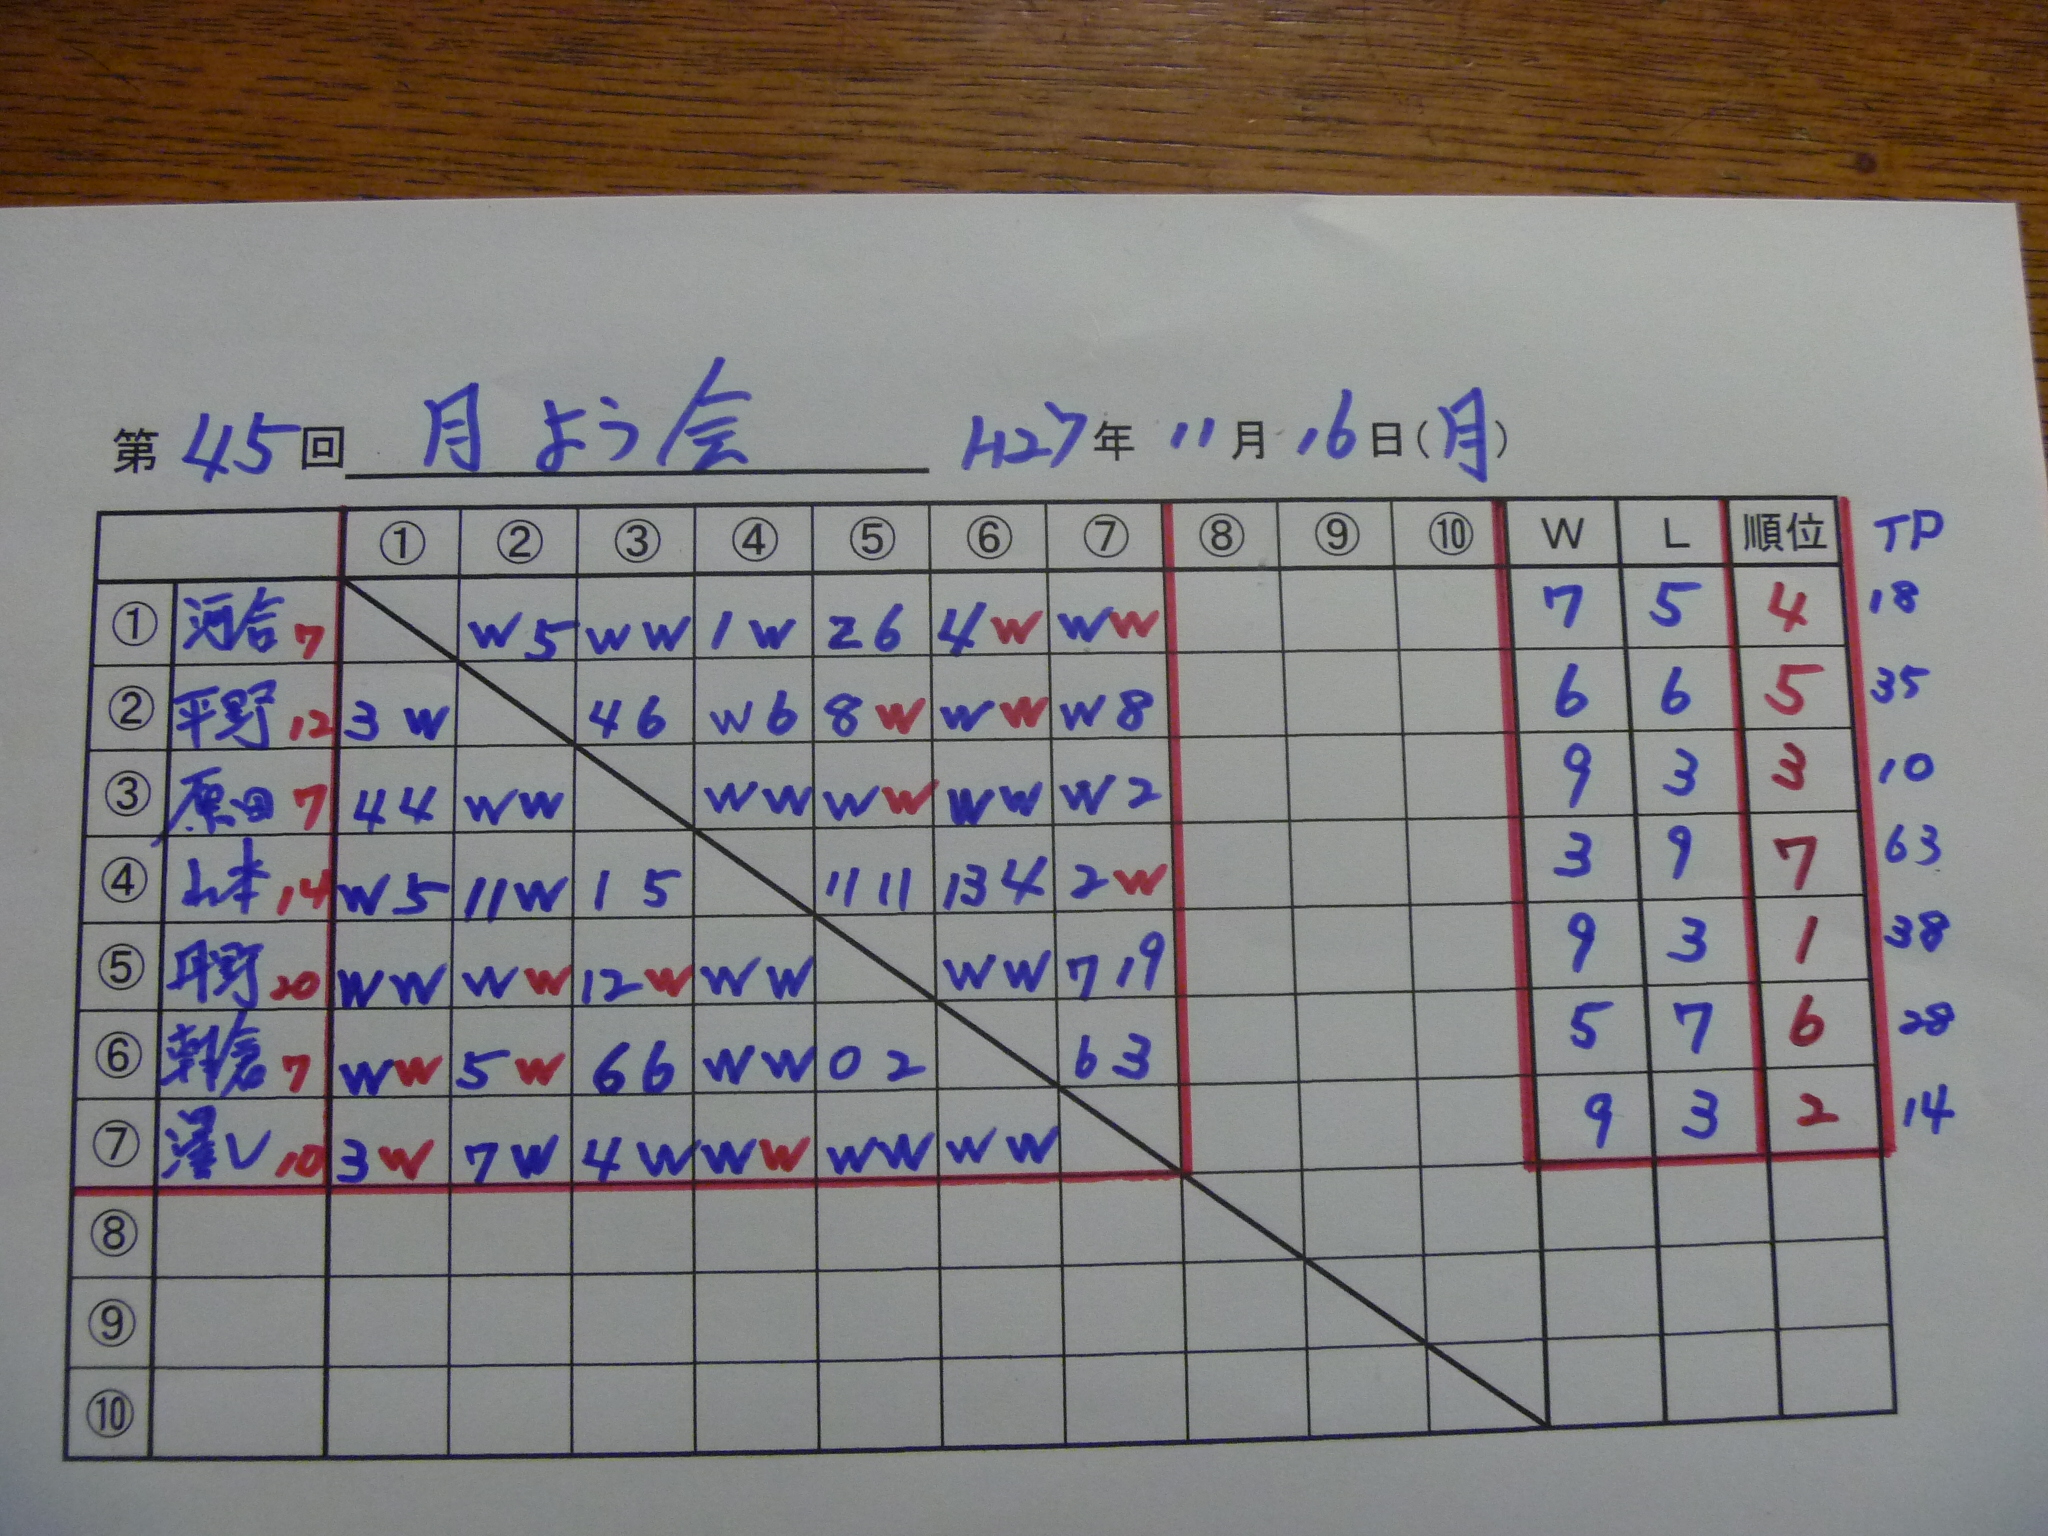 第 45 回 月よう会 H27年 11月 16日(月)
① ② ③ ④ ⑤ ⑥ ⑦ ⑧ ⑨ ⑩ W L 順位 TP
① 河合 7 W 5 W W 1 W 2 6 4 W W W 7 5 4 18
② 平野 12 3 W 4 6 W 6 8 W W W W 8 6 6 5 35
③ 原田 7 4 4 W W W W W W W W W 2 9 3 3 10
④ 山本 14 W 5 11 W 1 5 11 11 13 4 2 W 3 9 7 63
⑤ 野 20 W W W W 12 W W W W W 7 19 9 3 1 38
⑥ 朝倉 7 W W 5 W 6 6 W W 0 2 6 3 5 7 6 28
⑦ 10 3 W 7 W 4 W W W W W W W 9 3 2 14
⑧
⑨
⑩